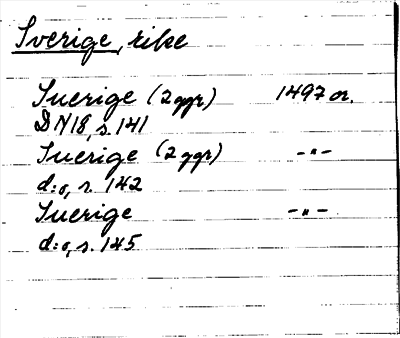 Sverige, rike
Suerige (2 ggr) 1497 or.
DN18, s. 141
Suerige (2 ggr) -"-
d:o, s. 142
Suerige -"-
d:o, s. 145